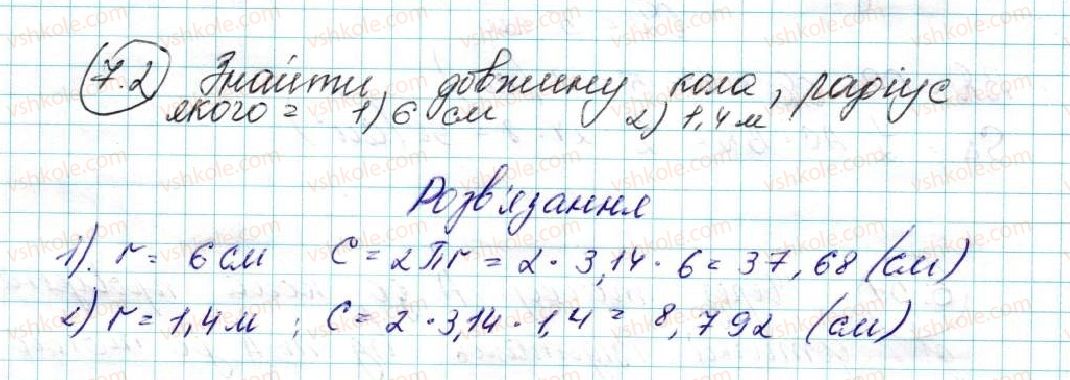 7.2 Знайти довжину кола, радіус
якого = 1) 6 см 2) 1,4 м
Розв'язання
1). r = 6 см C = 2πr = 2 · 3,14 · 6 = 37,68 (см)
2) r = 1,4 м ; C = 2 · 3,14 · 1,4 = 8,792 (см)